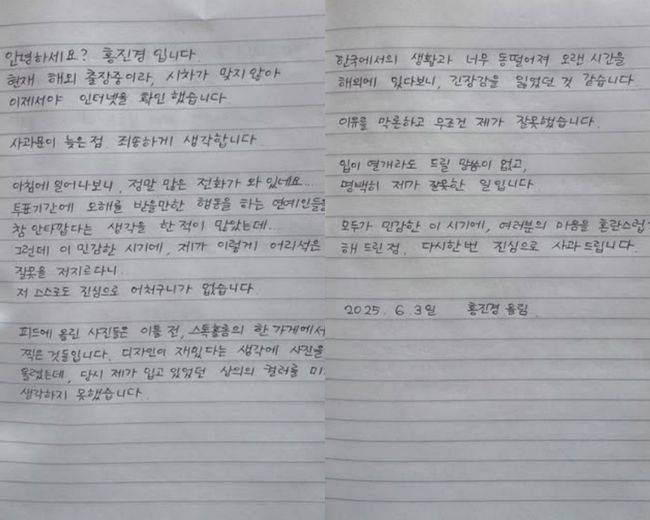 안녕하세요? 홍진경 입니다.
현재 해외 출장중이라, 시차가 맞지 않아
이제서야 인터넷을 확인 했습니다
사과문이 늦은점. 죄송하게 생각합니다
아침에 일어나보니, 정말 많은 전화가 와 있네요...
투표기간에 오해를 받을만한 행동을 하는 연예인들을
참 안타깝다는 생각을 한 적이 많았는데...
그런데 이 민감한 시기에, 제가 이렇게 어리석은
잘못을 저지르다니...
저 스스로도 진심으로 어처구니가 없습니다.
피드에 올린 사진들은 이틀 전, 스톡홀름의 한 가게에서
찍은 것들입니다. 디자인이 재밌다는 생각에 사진을
올렸는데, 당시 제가 입고 있었던 상의의 컬러를 미
생각하지 못했습니다.
한국에서의 생활과 너무 동떨어져 오랜 시간을
해외에 있다보니, 긴장감을 잃었던 것 같습니다.
이유를 막론하고 무조건 제가 잘못했습니다.
입이 열개라도 드릴 말씀이 없고,
명백히 제가 잘못한 일입니다
모두가 민감한 이 시기에, 여러분의 마음을 혼란스럽
해 드린 점, 다시한번 진심으로 사과드립니다.
2025. 6. 3일 홍진경 올림